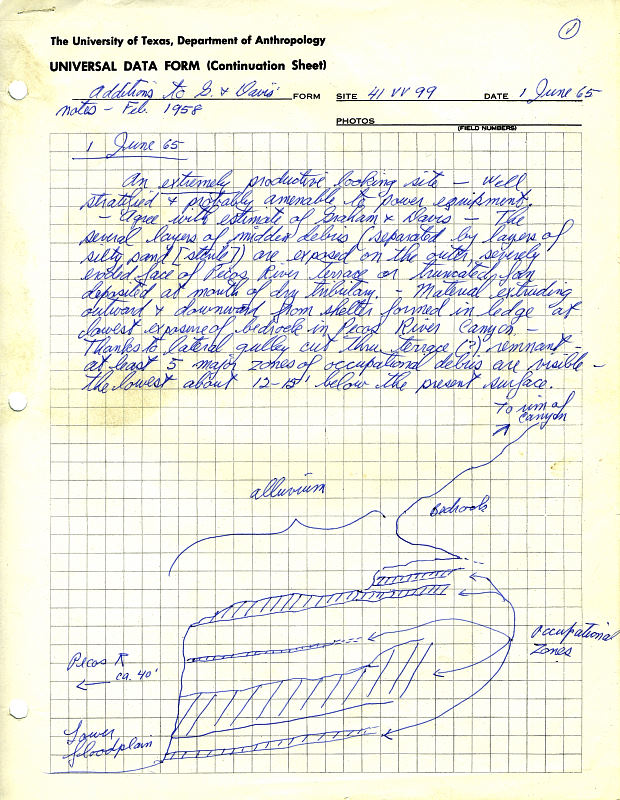 1
The University of Texas, Department of Anthropology
UNIVERSAL DATA FORM (Continuation Sheet)
Additions to G. & Davis' FORM SITE 41 VV 99 DATE 1 June 65
notes - Feb. 1958
PHOTOS
(FIELD NUMBERS)
1 June 65
An extremely productive looking site - Well
stratified & probably amenable to power equipment.
- Agree with estimate of Graham & Davis - The
several layers of midden debris (separated by layers of
silty sand [sterile]) are exposed on the outer, severely
eroded face of Pecos River terrace or truncated fan
deposited at mouth of dry tributary. - Material extruding
outward & downward from shelter formed in ledge at
lowest exposure of bedrock in Pecos River Canyon -
Thanks to lateral gulley cut thru terrace (?) remnant -
at least 5 major zones of occupational debris are visible -
the lowest about 12-15' below the present surface.
To rim of
Canyon
alluvium
Bedrock
Occupational
Zones
Pecos R
ca. 40'
Lower
floodplain